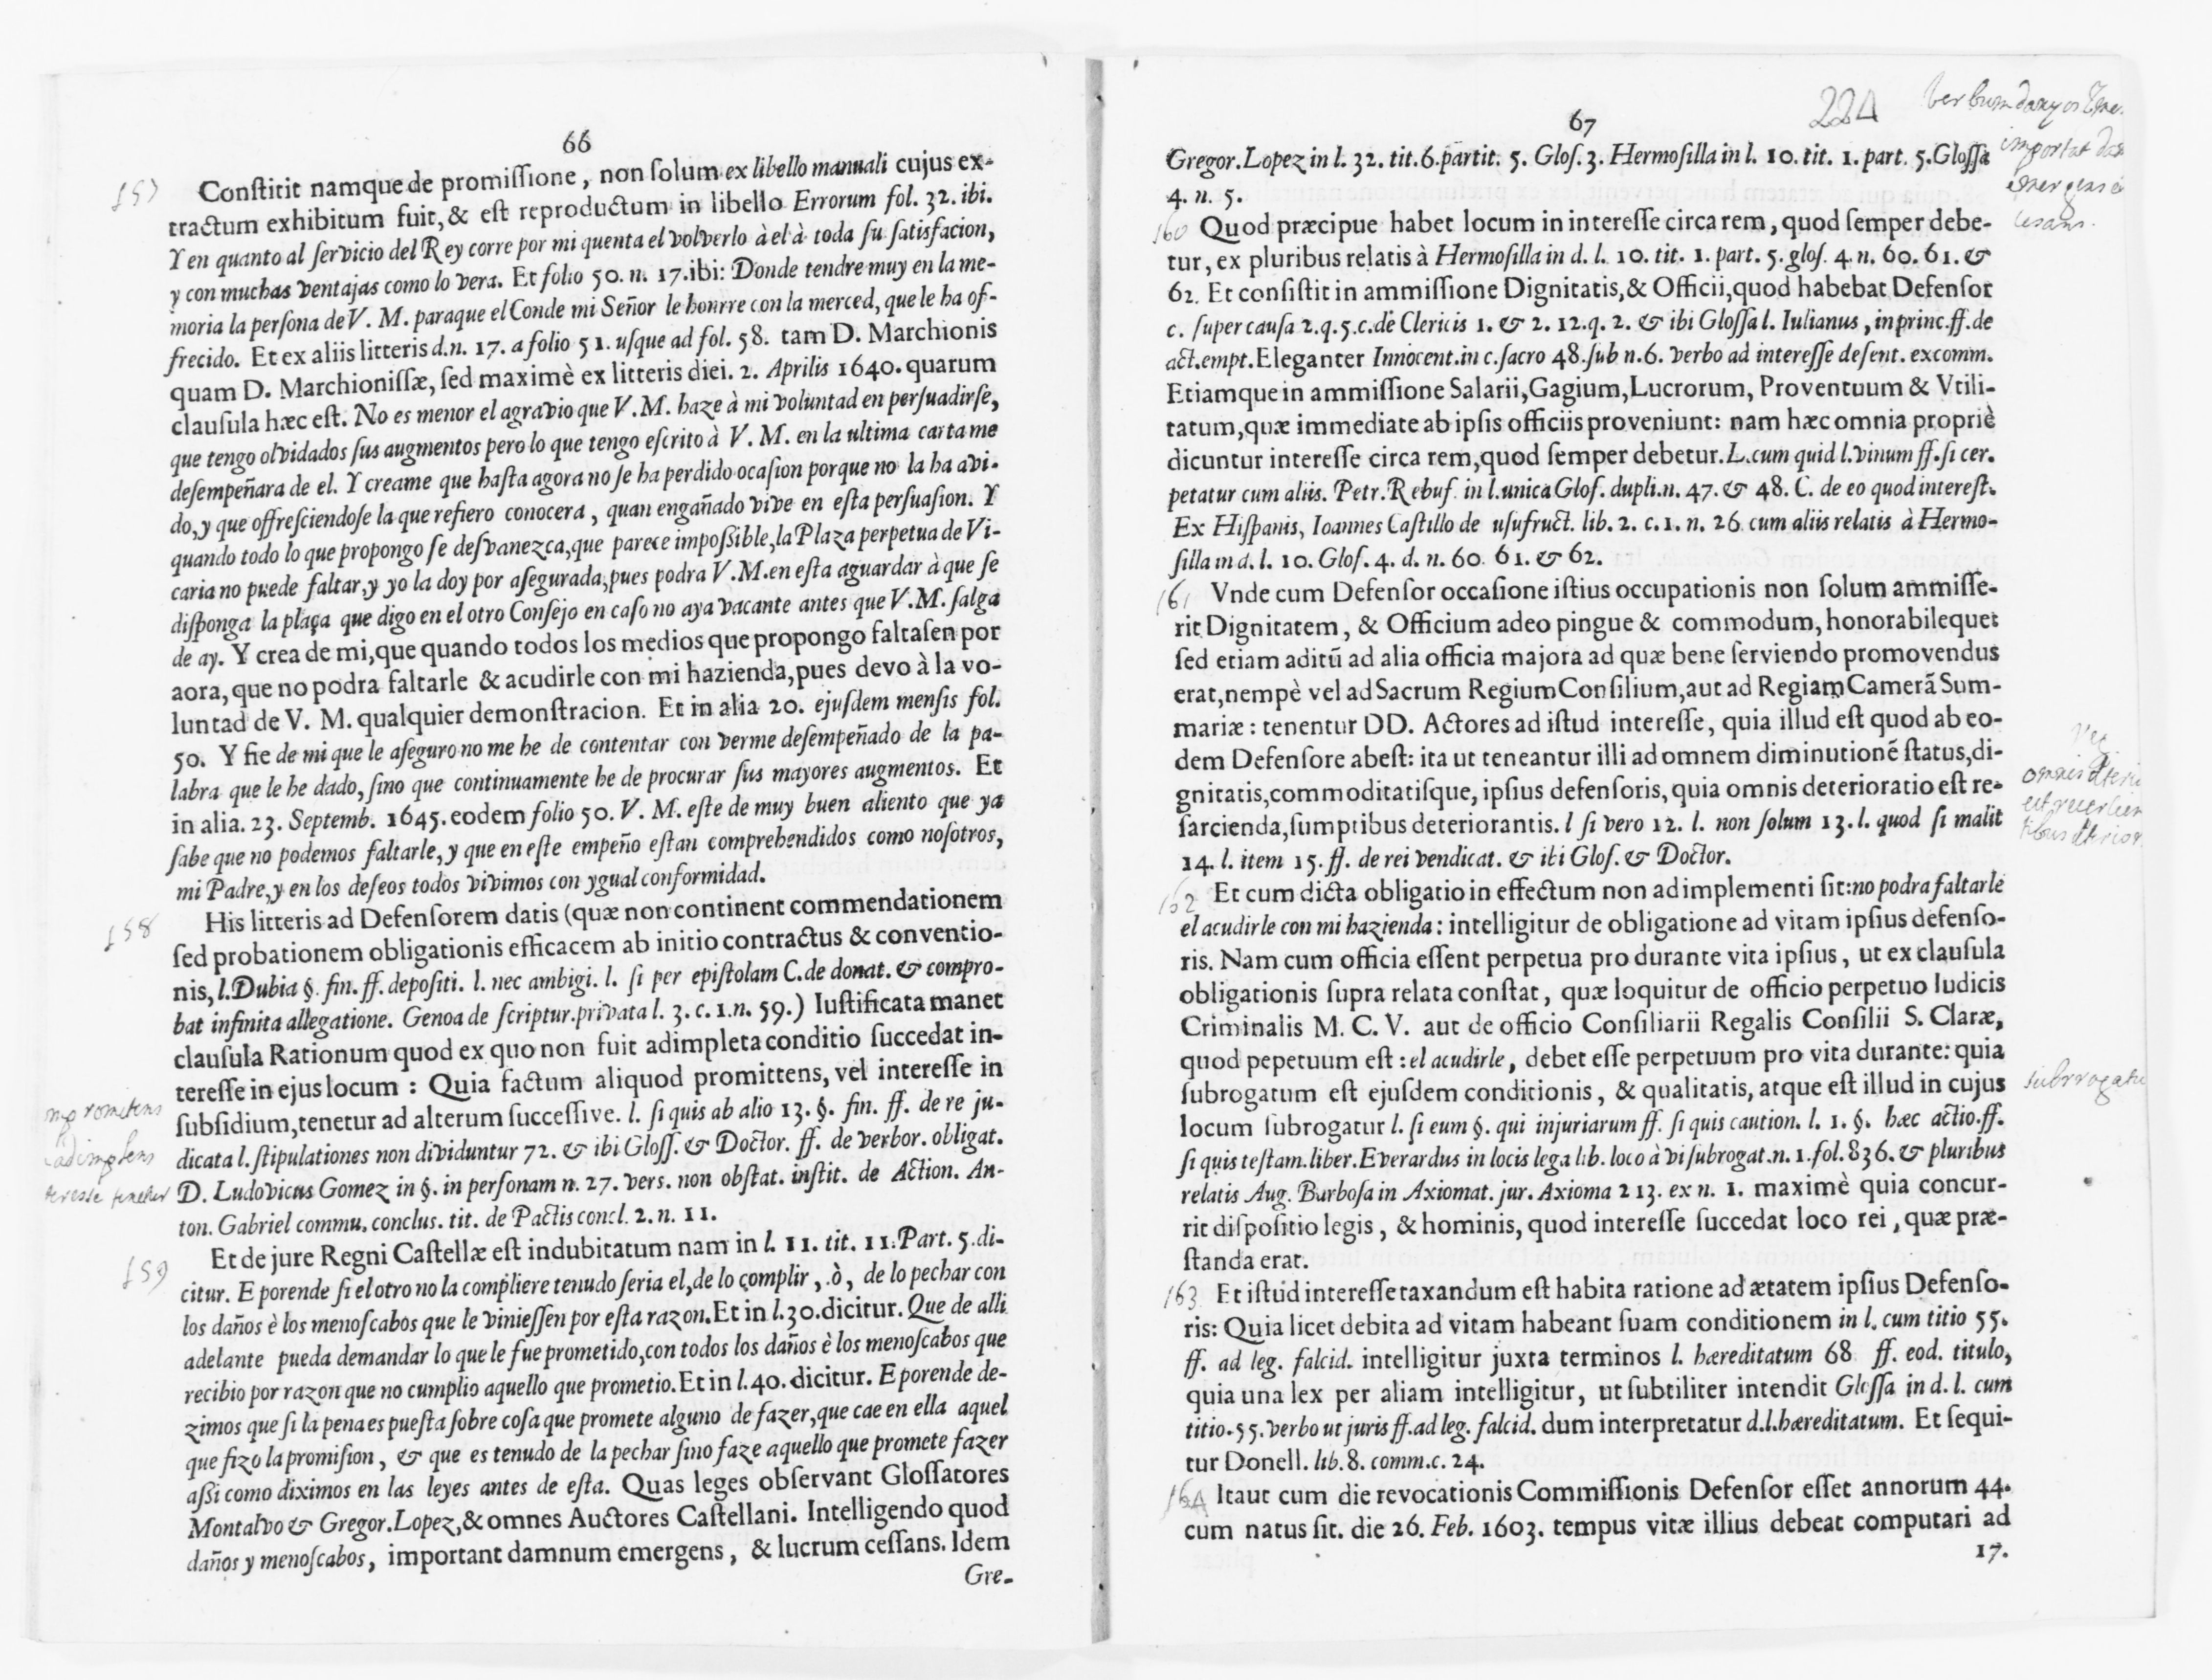 66
157 Constitit namque de promissione, non solum ex libello manuali cujus ex-
tractum exhibitum fuit, & est reproductum in libello Errorum fol. 32. ibi.
Y en quanto al servicio del Rey corre por mi quenta el volverlo à el à toda su satisfacion,
y con muchas ventajas como lo vera. Et folio 50. n. 17. ibi: Donde tendre muy en la me-
moria la persona de V. M. paraque el Conde mi Señor le honrre con la merced, que le ha of-
frecido. Et ex aliis litteris d. n. 17. a folio 51. usque ad fol. 58. tam D. Marchionis
quam D. Marchionissæ, sed maximè ex litteris diei. 2. Aprilis 1640. quarum
clausula hæc est. No es menor el agravio que V. M. haze à mi voluntad en persuadirse,
que tengo olvidados sus augmentos pero lo que tengo escrito à V. M. en la ultima carta me
desempeñara de el. Y creame que hasta agora no se ha perdido ocasion porque no la ha avi-
do, y que offresciendose la que refiero conocera, quan engañado vive en esta persuasion. Y
quando todo lo que propongo se desvanezca, que parece impossible, la Plaza perpetua de Vi-
caria no puede faltar, y yo la doy por asegurada, pues podra V. M. en esta aguardar à que se
disponga la plaça que digo en el otro Consejo en caso no aya vacante antes que V. M. salga
de ay. Y crea de mi, que quando todos los medios que propongo faltasen por
aora, que no podra faltarle & acudirle con mi hazienda, pues devo à la vo-
luntad de V. M. qualquier demonstracion. Et in alia 20. ejusdem mensis fol.
50. Y fie de mi que le aseguro no me he de contentar con verme desempeñado de la pa-
labra que le he dado, sino que continuamente he de procurar sus mayores augmentos. Et
in alia. 23. Septemb. 1645. eodem folio 50. V. M. este de muy buen aliento que ya
sabe que no podemos faltarle, y que en este empeño estan comprehendidos como nosotros,
mi Padre, y en los deseos todos vivimos con ygual conformidad.
158 His litteris ad Defensorem datis (quæ non continent commendationem
sed probationem obligationis efficacem ab initio contractus & conventio-
nis, l. Dubia §. fin. ff. depositi. l. nec ambigi. l. si per epistolam C. de donat. & compro-
bat infinita allegatione. Genoa de scriptur. privata l. 3. c. 1. n. 59.) Iustificata manet
clausula Rationum quod ex quo non fuit adimpleta conditio succedat in-
teresse in ejus locum : Quia factum aliquod promittens, vel interesse in
subsidium, tenetur ad alterum successive. l. si quis ab alio 13. §. fin. ff. de re ju-
dicata l. stipulationes non dividuntur 72. & ibi Gloss. & Doctor. ff. de verbor. obligat.
D. Ludovicus Gomez in §. in personam n. 27. vers. non obstat. instit. de Action. An-
ton. Gabriel commu. conclus. tit. de Pactis concl. 2. n. 11.
159 Et de jure Regni Castellæ est indubitatum nam in l. 11. tit. 11. Part. 5. di-
citur. E porende si el otro no la compliere tenudo seria el, de lo complir, ò, de lo pechar con
los daños è los menoscabos que le viniessen por esta razon. Et in l. 30. dicitur. Que de alli
adelante pueda demandar lo que le fue prometido, con todos los daños è los menoscabos que
recibio por razon que no cumplio aquello que prometio. Et in l. 40. dicitur. E porende de-
zimos que si la pena es puesta sobre cosa que promete alguno de fazer, que cae en ella aquel
que fizo la promision, & que es tenudo de la pechar sino faze aquello que promete fazer
assi como diximos en las leyes antes de esta. Quas leges observant Glossatores
Montalvo & Gregor. Lopez, & omnes Auctores Castellani. Intelligendo quod
daños y menoscabos, important damnum emergens, & lucrum cessans. Idem
Gre-
67
224
Gregor. Lopez in l. 32. tit. 6. partit. 5. Glos. 3. Hermosilla in l. 10. tit. 1. part. 5. Glossa
4. n. 5.
160 Quod præcipue habet locum in interesse circa rem, quod semper debe-
tur, ex pluribus relatis à Hermosilla in d. l. 10. tit. 1. part. 5. glos. 4. n. 60. 61. &
62. Et consistit in ammissione Dignitatis, & Officii, quod habebat Defensor
c. super causa 2. q. 5. c. de Clericis 1. & 2. 12. q. 2. & ibi Glossa l. Iulianus, in princ. ff. de
act. empt. Eleganter Innocent. in c. sacro 48. sub n. 6. verbo ad interesse de sent. excomm.
Etiamque in ammissione Salarii, Gagium, Lucrorum, Proventuum & Vtili-
tatum, quæ immediate ab ipsis officiis proveniunt: nam hæc omnia propriè
dicuntur interesse circa rem, quod semper debetur. L. cum quid l. vinum ff. si cer.
petatur cum aliis. Petr. Rebuf. in l. unica Glos. dupli. n. 47. & 48. C. de eo quod interest.
Ex Hispanis, Ioannes Castillo de usufruct. lib. 2. c. 1. n. 26 cum aliis relatis à Hermo-
silla in d. l. 10. Glos. 4. d. n. 60. 61. & 62.
161 Vnde cum Defensor occasione istius occupationis non solum ammisse-
rit Dignitatem, & Officium adeo pingue & commodum, honorabileque:
sed etiam aditũ ad alia officia majora ad quæ bene serviendo promovendus
erat, nempè vel ad Sacrum Regium Consilium, aut ad Regiam Camerã Sum-
mariæ : tenentur DD. Actores ad istud interesse, quia illud est quod ab eo-
dem Defensore abest: ita ut teneantur illi ad omnem diminutionẽ status, di-
gnitatis, commoditatisque, ipsius defensoris, quia omnis deterioratio est re-
sarcienda, sumptibus deteriorantis. l si vero 12. l. non solum 13. l. quod si malit
14. l. item 15. ff. de rei vendicat. & ibi Glos. & Doctor.
162 Et cum dicta obligatio in effectum non adimplementi sit: no podra faltarle
el acudirle con mi hazienda : intelligitur de obligatione ad vitam ipsius defenso-
ris. Nam cum officia essent perpetua pro durante vita ipsius, ut ex clausula
obligationis supra relata constat, quæ loquitur de officio perpetuo Iudicis
Criminalis M. C. V. aut de officio Consiliarii Regalis Consilii S. Claræ,
quod pepetuum est : el acudirle, debet esse perpetuum pro vita durante: quia
subrogatum est ejusdem conditionis, & qualitatis, atque est illud in cujus
locum subrogatur l. si eum §. qui injuriarum ff. si quis caution. l. 1. §. hæc actio. ff.
si quis testam. liber. Everardus in locis lega lib. loco à vi subrogat. n. 1. fol. 836. & pluribus
relatis Aug. Barbosa in Axiomat. jur. Axioma 213. ex n. 1. maximè quia concur-
rit dispositio legis, & hominis, quod interesse succedat loco rei, quæ præ-
standa erat.
163 Et istud interesse taxandum est habita ratione ad ætatem ipsius Defenso-
ris: Quia licet debita ad vitam habeant suam conditionem in l. cum titio 55.
ff. ad leg. falcid. intelligitur juxta terminos l. hæreditatum 68 ff. eod. titulo,
quia una lex per aliam intelligitur, ut subtiliter intendit Glossa in d. l. cum
titio. 55. verbo ut juris ff. ad leg. falcid. dum interpretatur d. l. hæreditatum. Et sequi-
tur Donell. lib. 8. comm. c. 24.
164 Itaut cum die revocationis Commissionis Defensor esset annorum 44.
cum natus sit. die 26. Feb. 1603. tempus vitæ illius debeat computari ad
17.